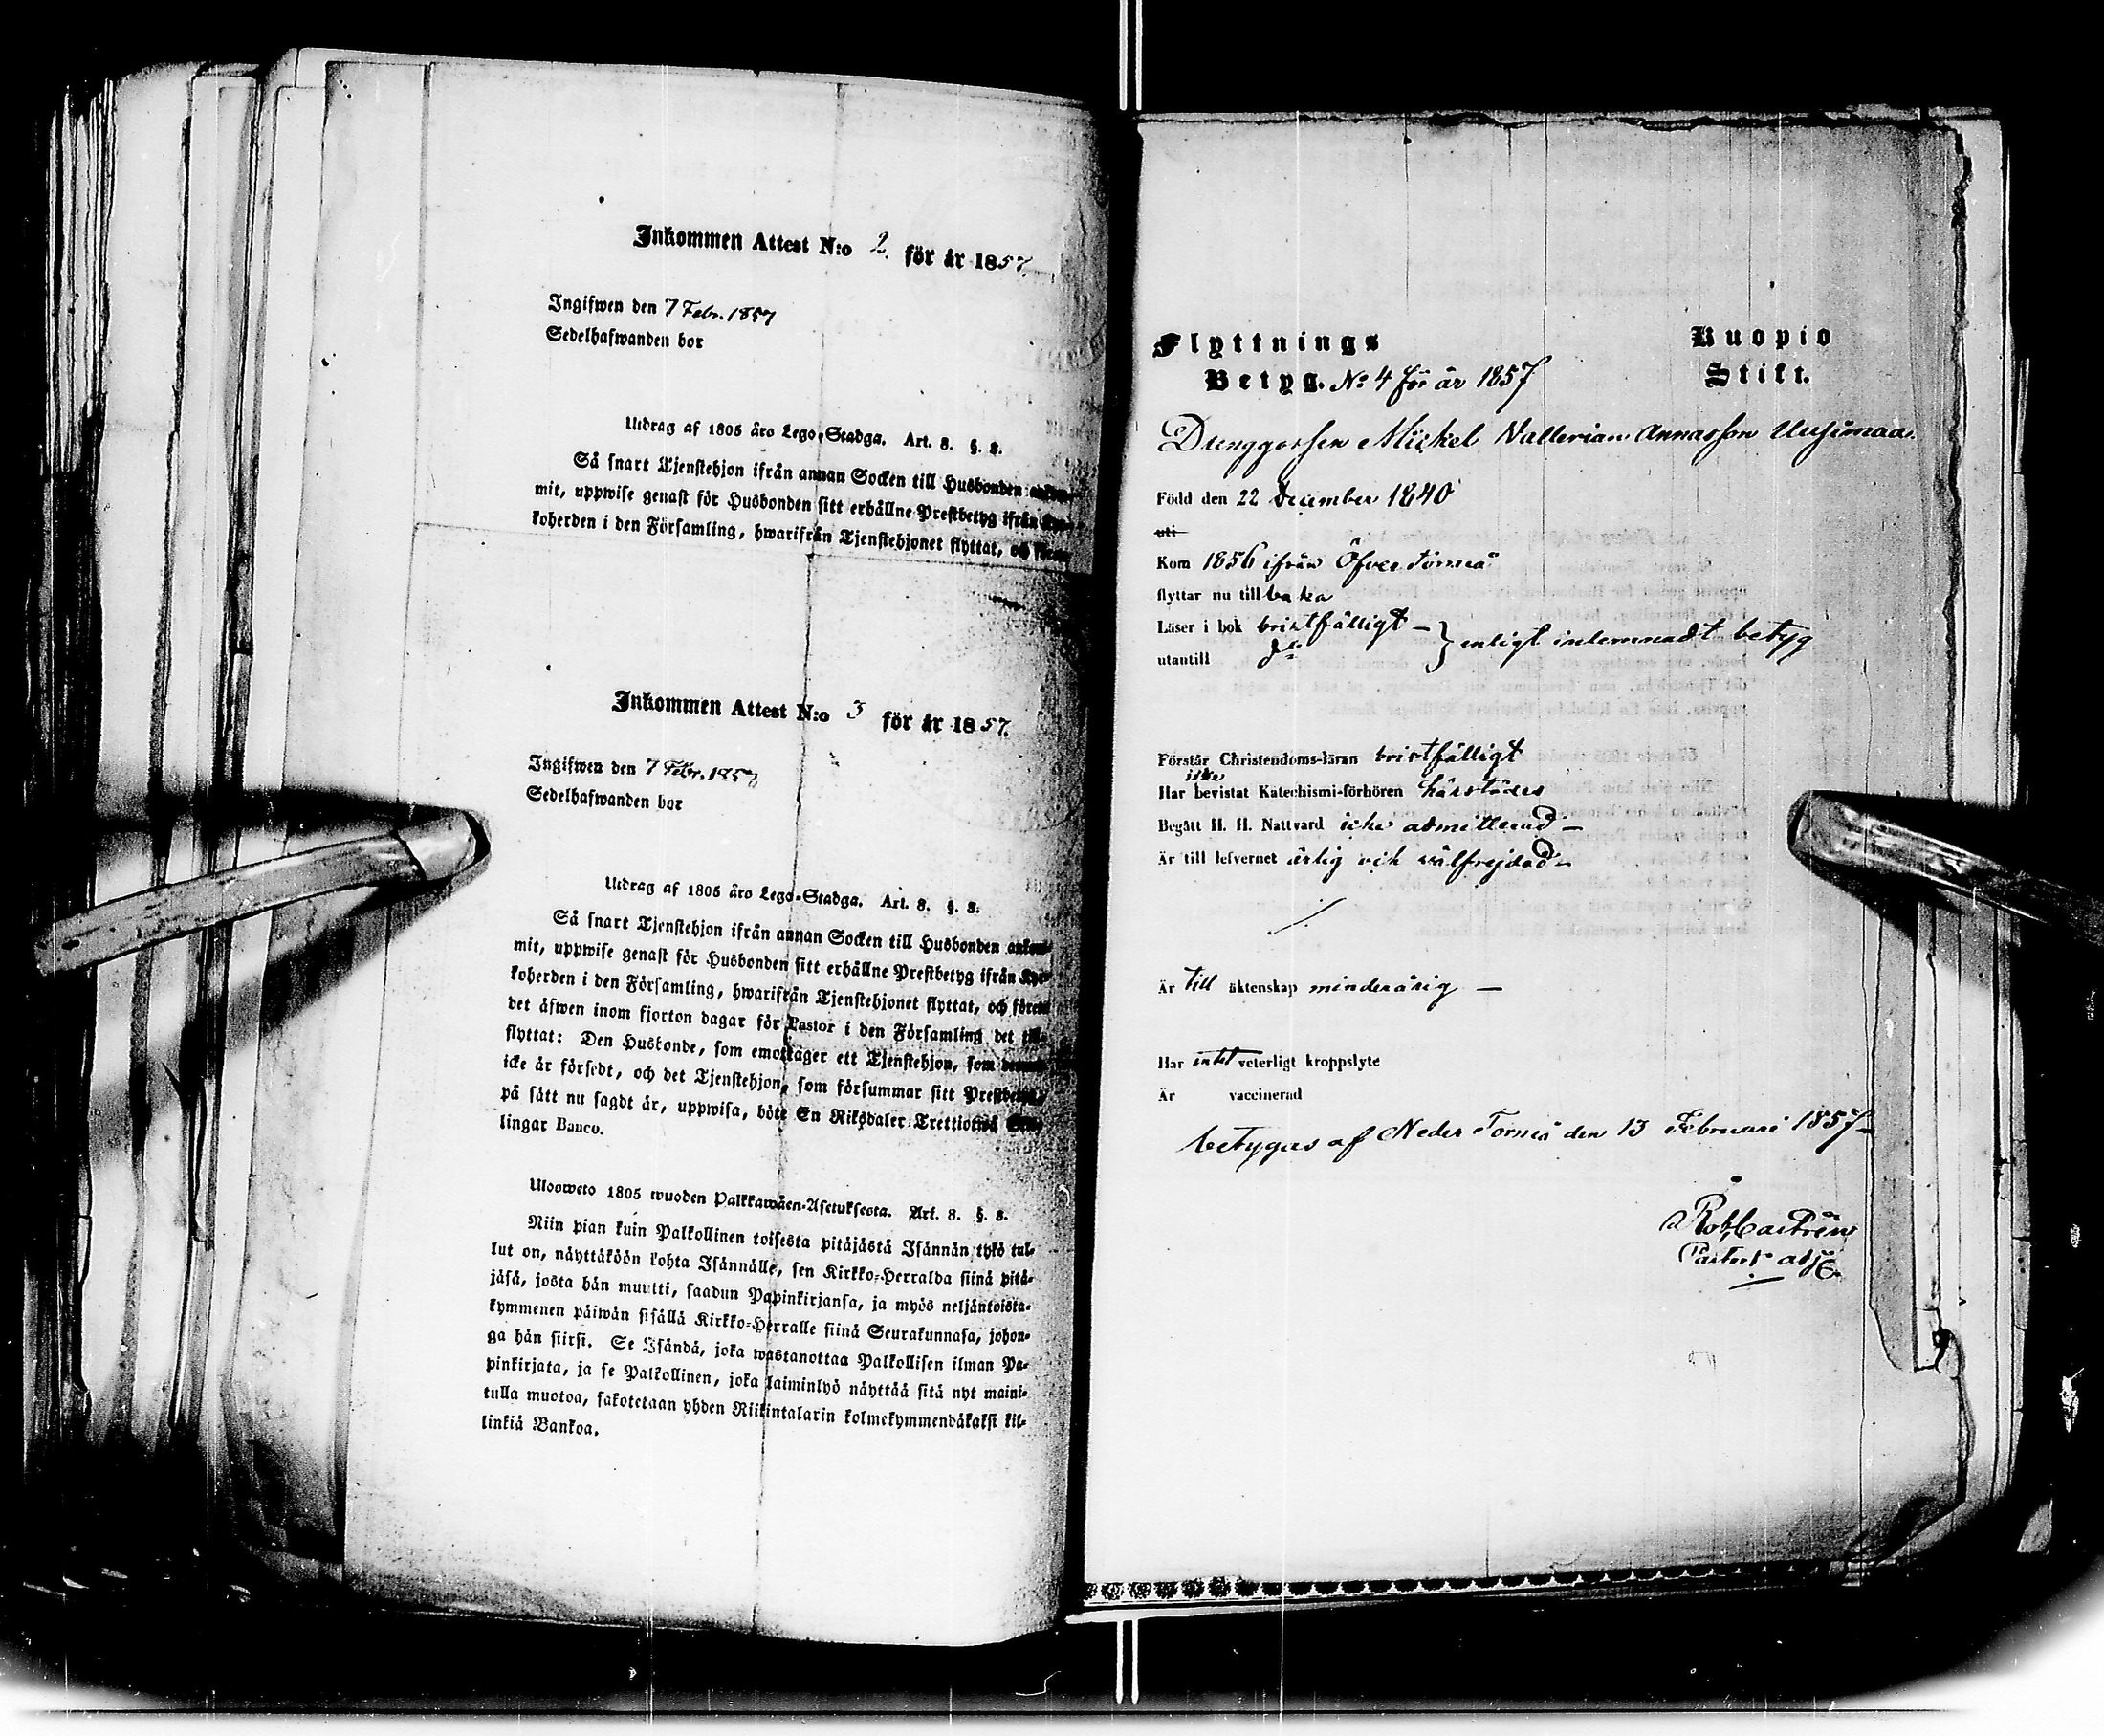 Inkommen Attest N:o 2. för år 1857.
Ingifwen den 7 Febr. 1857
Sedelhafwanden bor
Utdrag af 1805 års Lego-Stadga. Art. 8. §. 8.
Så snart Tjenstehjon ifrån annan Socken till Husbonden
mit, uppwise genast för Husbonden sitt erhållne Prestbetyg ifrån
koherden i den Församling, hwarifrån Tjenstehjonet flyttat, och
Inkommen Attest N:o 3 för år 1857.
Ingifwen den 7 Febr. 1857
Sedelhafwanden bor
Utdrag af 1805 års Lego-Stadga. Art. 8. §. 8.
Så snart Tjenstehjon ifrån annan Socken till Husbonden ankom-
mit, uppwise genast för Husbonden sitt erhållne Prestbetyg ifrån Kyr-
koherden i den Församling, hwarifrån Tjenstehjonet flyttat, och förete
det äfwen inom fjorton dagar för Pastor i den Församling det till-
flyttat: Den Husbonde, som emottager ett Tjenstehjon, som
icke är försedt, och det Tjenstehjon, som försummar sitt Prestbetyg,
på sätt nu sagdt är, uppwisa, böte En Riksdaler Trettiotwå
lingar Banco.
Ulosweto 1805 wuoden Palkkawäen-Asetuksesta. Art. 8. §. 8.
Niin pian kuin Palkollinen toisesta pitäjästä Isännän tykö tul-
lut on, näyttäköön kohta Isännälle, sen Kirkko-Herralda siinä pitä-
jäsä, josta hän muutti, saadun Papinkirjansa, ja myös neljäntoista-
kymmenen päiwän sisällä Kirkko-Herralle siinä Seurakunnasa, johon-
ga hän siirsi. Se Isändä, joka wastanottaa Palkollisen ilman Pa-
pinkirjata, ja se Palkollinen, joka laiminlyö näyttää sitä nyt maini-
tulla muotoa, sakotetaan yhden Riikintalarin kolmekymmendäkaksi kil-
linkiä Bankoa.
Flyttnings Kuopio
Betyg. No 4 för år 1857 Stift.
Drenggossen Mickel Vallerian Annasson Uusimaa
Född den 22 December 1840
uti
Kom 1856 ifrån Öfver Torneå
flyttar nu tillbaka
Läser i bok bristfälligt –
utantill do } enligt inlemnadt betyg
Förstår Christendoms-läran bristfälligt
icke
Har bevistat Katechismi-förhören härstädes
Begått H. H. Nattvard icke admitterad –
Är till lefvernet ärlig och välfrejdad –
Är till äktenskap minderårig –
Har intet veterligt kroppslyte
Är vaccinerad
betygas af Neder Torneå den 13 Februari 1857 –
Rob Castrén
Pastors adj.